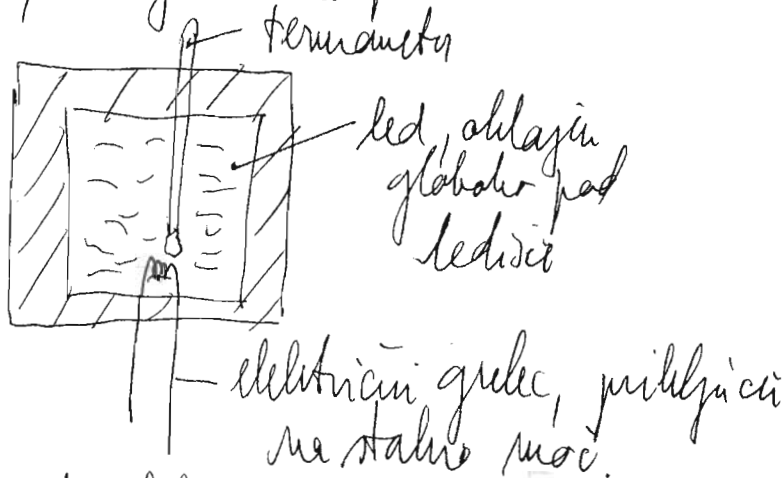 termometer
led, ohlajen
globoko pod
ledišče
električni grelec, priključen
na stalno moč.